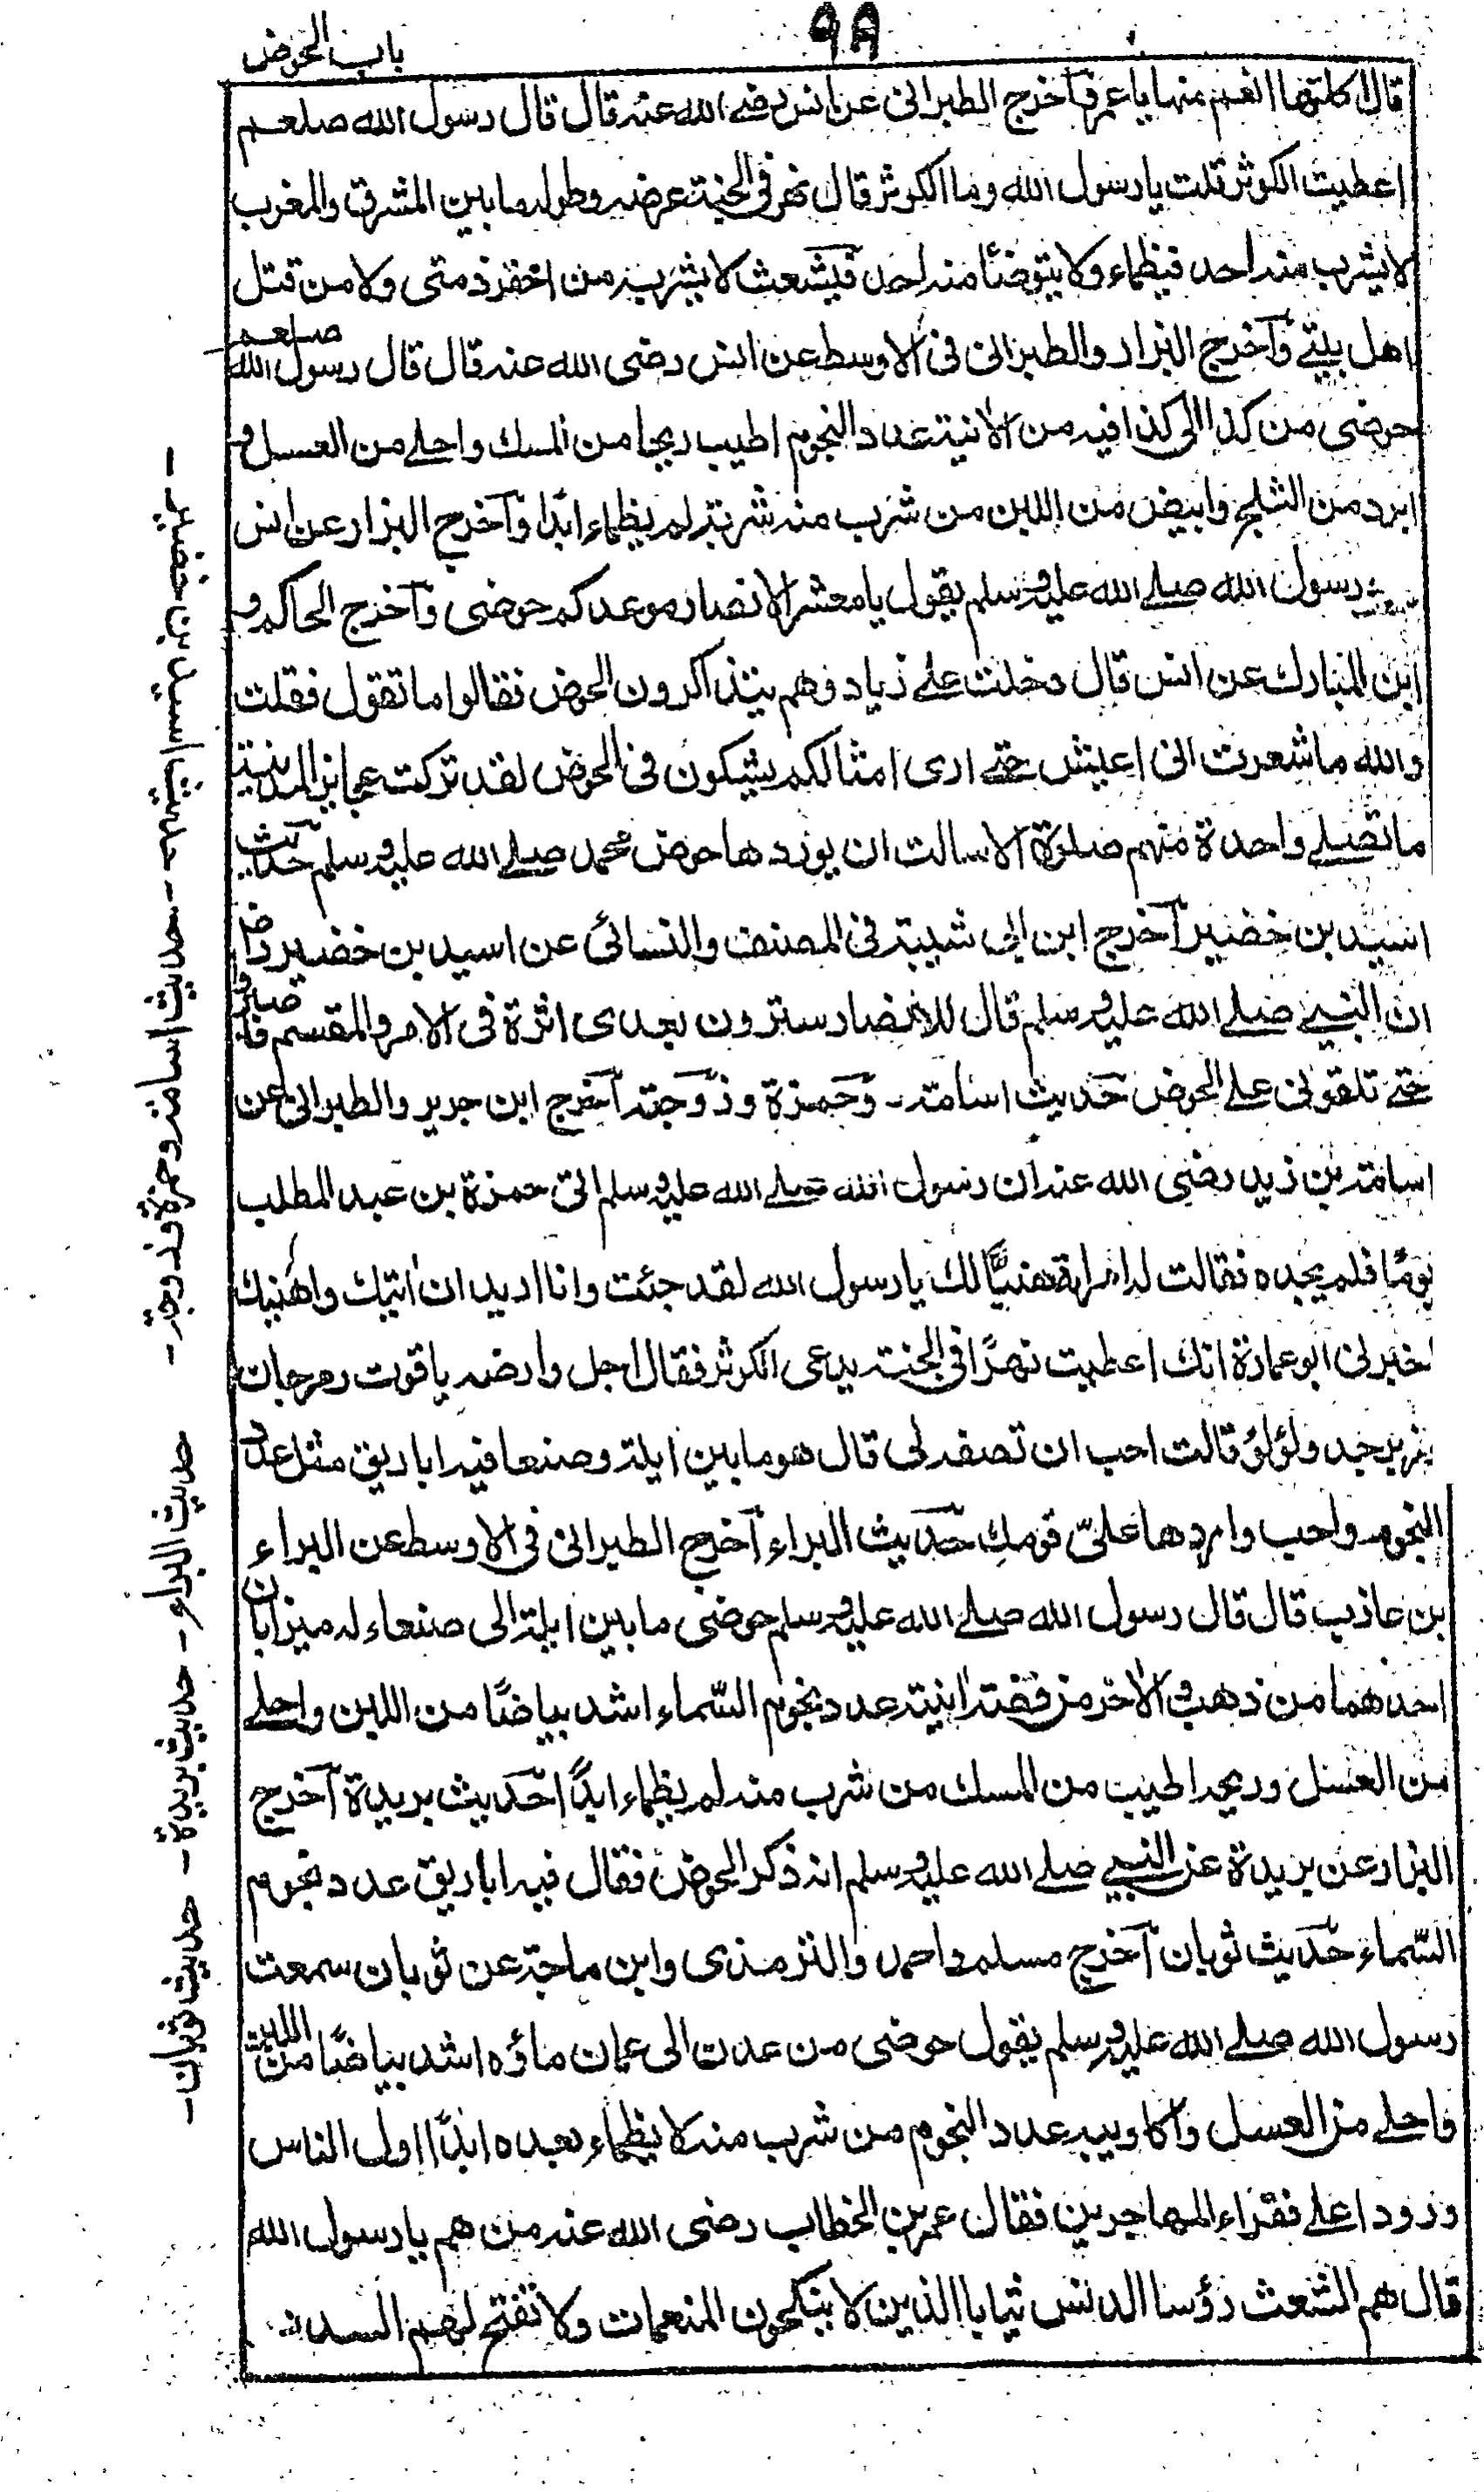 ٩٨
باب الحوض
قال اكلتها انعم منها يا عمر وآخرج الطبرانى عن انس رضے الله عنه قال قال رسول الله صلعم
اعطيت الكوثر قلت يا رسول الله وما الكوثر قال نهر فى الجنة عرضه وطوله ما بين المشرق والمغرب
لا يشرب منه احد فيظماء ولا يتوضأ منه احد فيشعث لا يشربه من اخفر ذمتى ولا من قتل
اهل بيتے وآخرج البزار والطبرانى فى الاوسط عن انس رضى الله عنه قال قال رسول الله صلعم
حوضى من كذا الى كذا فيه من الانية عدد النجوم اطيب ريحا من المسك واحلے من العسل و
ابرد من الثلج وابيض من اللبن من شرب منه شربة لم يظماء ابدًا وآخرج البزار عن انس
سمعت رسول الله صلے الله عليه وسلم يقول يا معشر الانصار موعدكم حوضى وآخرج الحاكم و
ابن المبارك عن انس قال دخلت علے زياد وهم يتذاكرون الحوض فقالوا ما تقول فقلت
والله ما شعرت انى اعيش حتے ارى امثالكم يشكون فى الحوض لقد تركت عجائز المدينة
ما تصلے واحدة منهم صلوة الا سالت ان يوردها حوض محمد صلے الله عليه وسلم حديث
اسيد بن خضير آخرج ابن ابى شيبة فى المصنف والنسائى عن اسيد بن خضير رض
ان النبے صلے الله عليه وسلم قال للانصار سترون بعدى اثرة فى الامر والمقسم فاصبروا
حتے تلقونى علے الحوض حديث اسامة ـ وحمزة وزوجته آخرج ابن جرير والطبرانى عن
اسامة بن زيد رضى الله عنه ان رسول الله صلے الله عليه وسلم اتى حمزة بن عبد المطلب
يومًا فلم يجده فقالت له امراة هنيًّا لك يا رسول الله لقد جئت وانا اريد ان اتيك واهنيك
اخبرنى ابو عمارة انك اعطيت نهرًا فى الجنة يدعى الكوثر فقال اجل وارضه ياقوت ومرجان
زبرجد ولؤلؤ قالت احب ان تصفه لى قال هو ما بين ايلة وصنعا فيه اباريق مثل عدد
النجوم واحب واردها علىّ قومك حديث البراء آخرج الطبرانى فى الاوسط عن البراء
بن عازب قال قال رسول الله صلے الله عليه وسلم حوضى ما بين ايلة الى صنعاء له ميزابان
احدهما من ذهب والاخر من فضة انيته عدد نجوم السّماء اشد بياضًا من اللبن واحلے
من العسل وريحه اطيب من المسك من شرب منه لم يظماء ابدًا حديث بريدة آخرج
البزار عن بريدة عن النبے صلے الله عليه وسلم انه ذكر الحوض فقال فيه اباريق عدد نجوم
السّماء حديث ثوبان آخرج مسلم واحمد والترمذى وابن ماجة عن ثوبان سمعت
رسول الله صلے الله عليه وسلم يقول حوضى من عدن الى عمان ماؤه اشد بياضًا من اللبن
واحلے من العسل واكاويبه عدد النجوم من شرب منه لا يظماء بعده ابدًا اول الناس
ورودا علے فقراء المهاجرين فقال عمر بن الخطاب رضى الله عنه من هم يا رسول الله
قال هم الشعث رؤسا الدنس ثيابا الذين لا ينكحون المنعمات ولا تفتح لهم السدد
حديث اسيد بن خضير ـ حديث اسامة وحمزة وزوجته ـ
حديث البراء ـ حديث بريدة ـ حديث ثوبان ـ